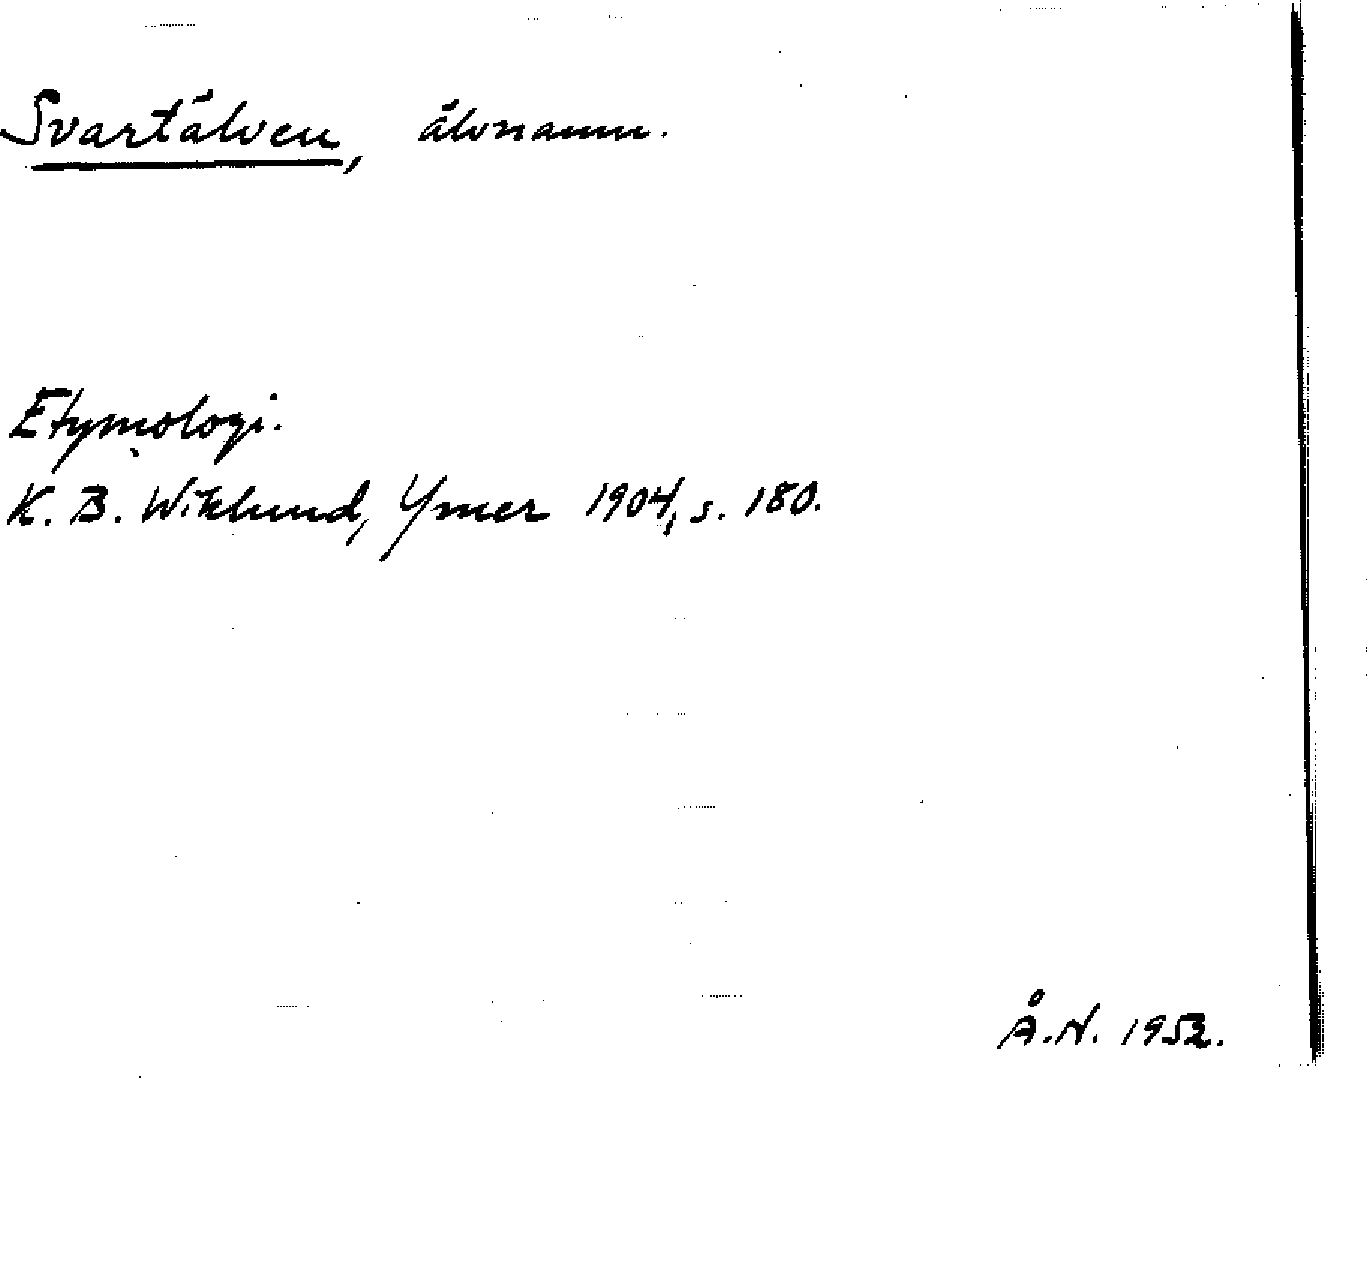 Svartälven, älvnamn.
Etymologi.
K. B. Wiklund, Ymer 1904, s. 180.
Å.N. 1952.